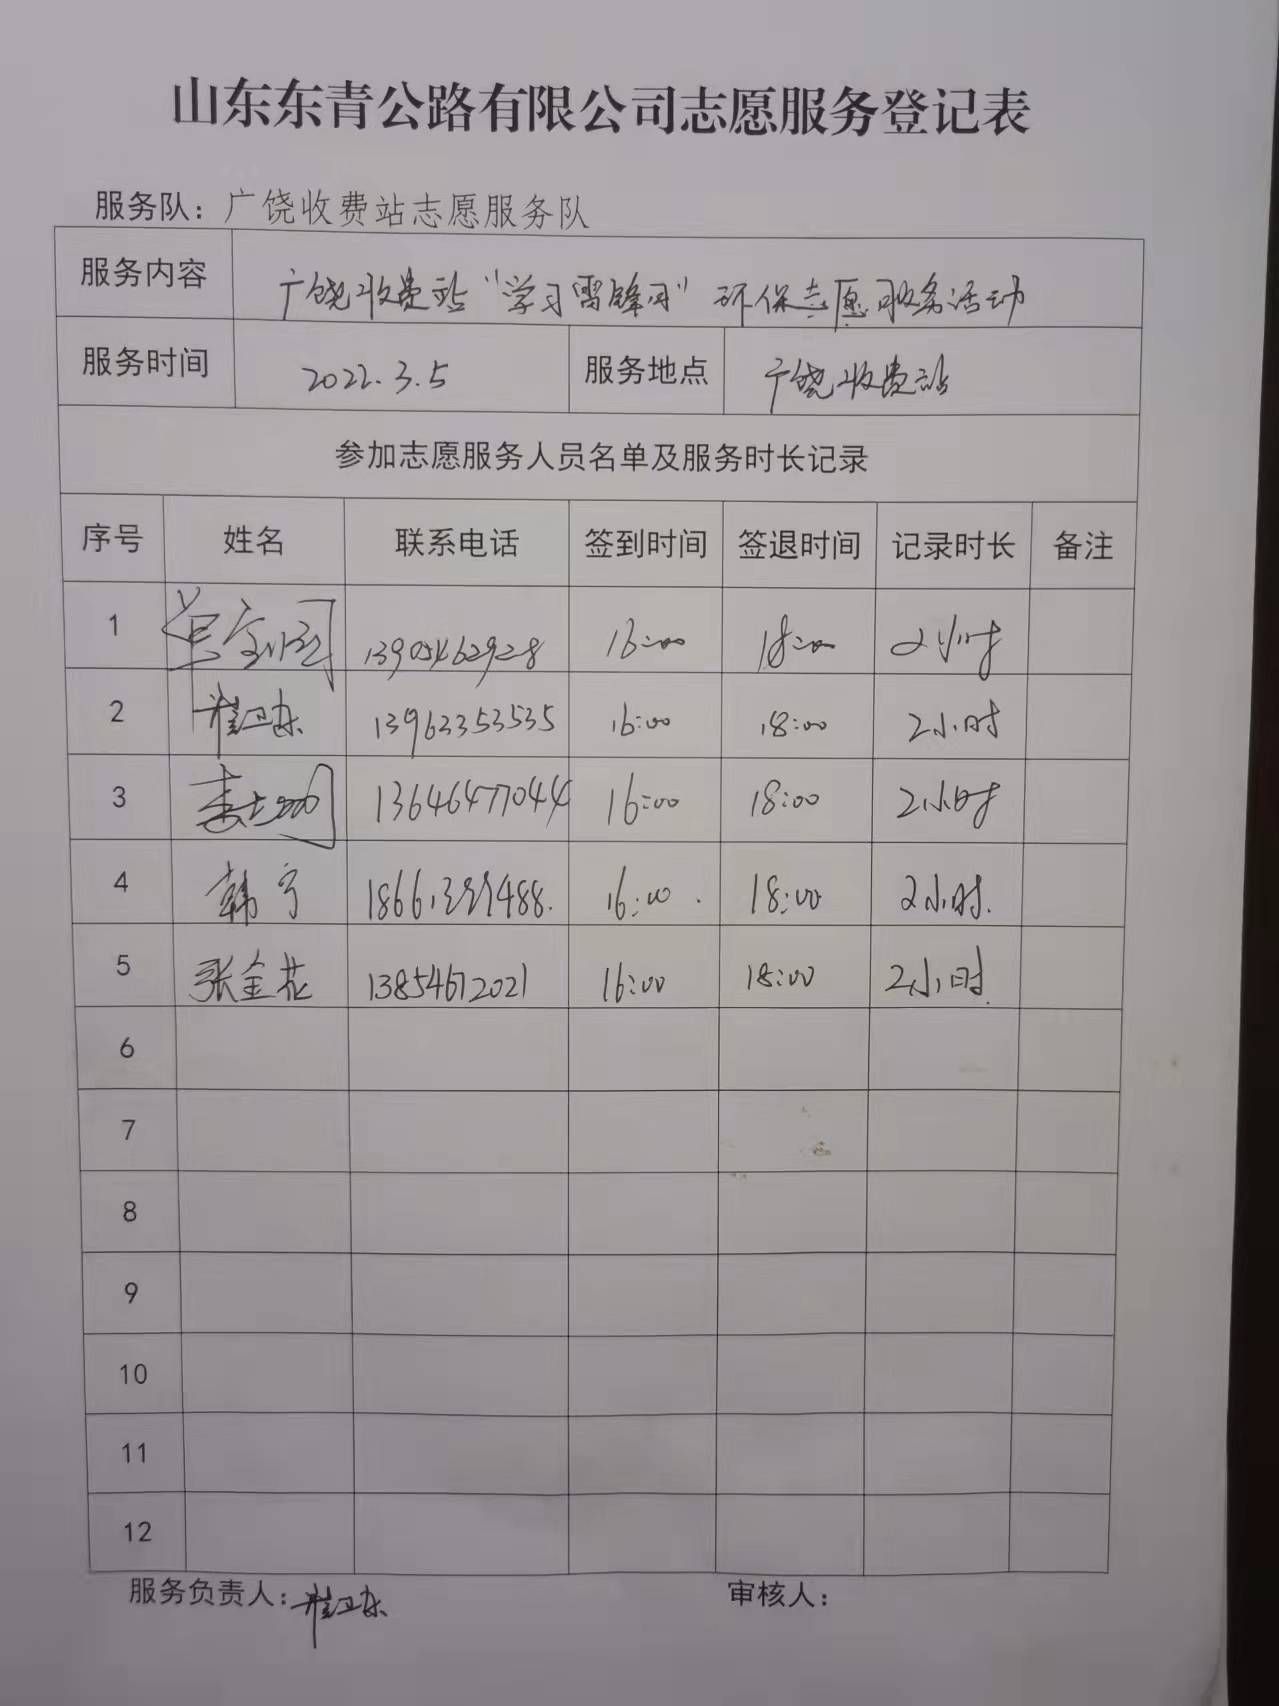 山东东青公路有限公司志愿服务登记表
服务队：广饶收费站志愿服务队
服务内容 广饶收费站“学习雷锋月”环保志愿服务活动
服务时间 2022.3.5 服务地点 广饶收费站
参加志愿服务人员名单及服务时长记录
序号 姓名 联系电话 签到时间 签退时间 记录时长 备注
1 13905462928 16:00 18:00 2小时
2 崔卫东 13963353535 16:00 18:00 2小时
3 13646477044 16:00 18:00 2小时
4 韩宁 16:00 18:00 2小时.
5 张金花 13854672021 16:00 18:00 2小时.
6
7
8
9
10
11
12
服务负责人：崔卫东 审核人：